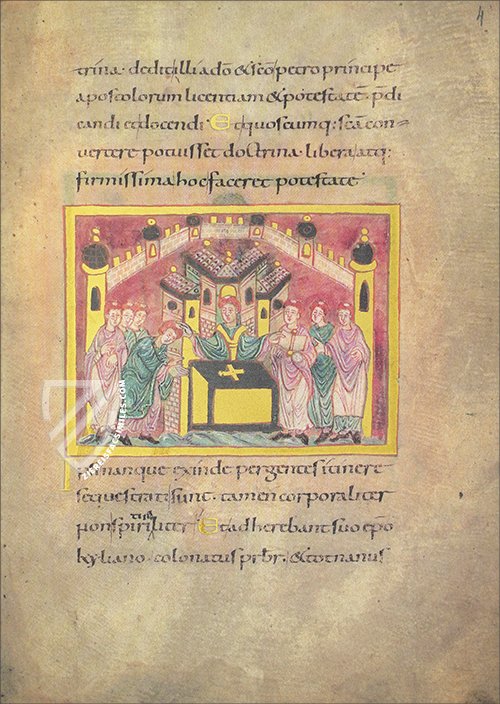 4
trina· dedit illi a dō & scō petro principe
apostolorum licentiam & potestatē p̄di
candi et docendi· Et quoscumq; sea con-
vertere potuisset doctrina· libera atq;
firmissima hoc faceret potestate·
Romanque exinde pergentes itinere
sequestrati sunt· tamen corporaliter
non spiritaliter Et adherebant suo ep̄o
kyliano· colonatus pr̄br· & totnanus
ZIEREIS
FACSIMILES.COM